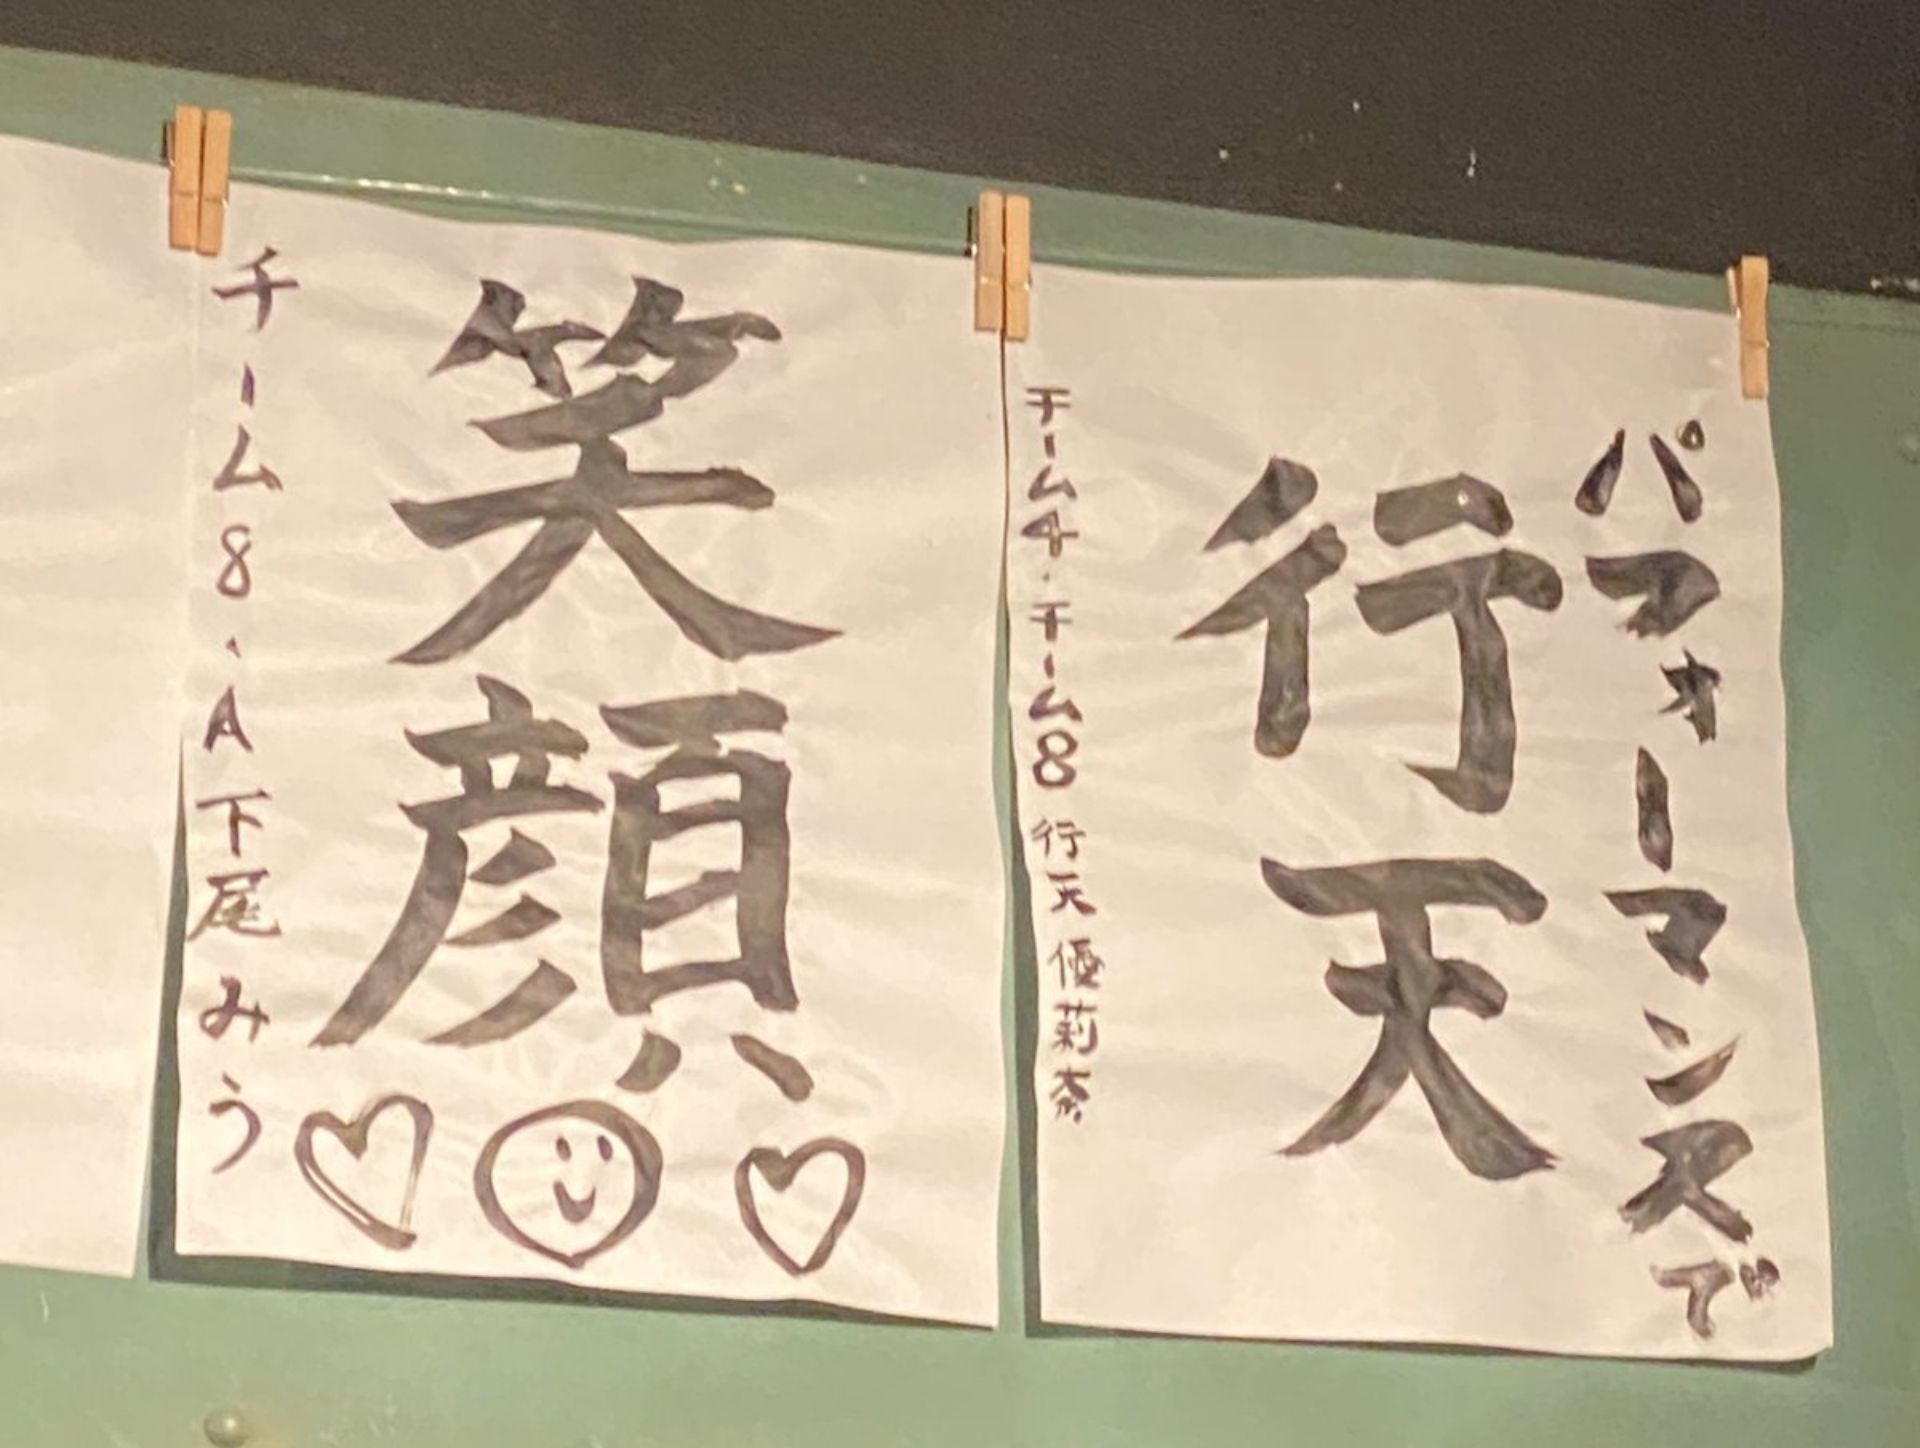 パフォーマンスで
行天
チーム4・チーム8 行天優莉奈
笑顔
チーム8・A 下尾みう